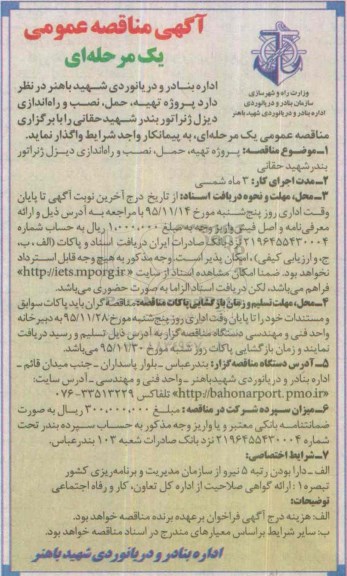 آگهی مناقصه عمومی
یک مرحله‌ای
وزارت راه و شهرسازی
سازمان بنادر و دریانوردی
اداره بنادر و دریانوردی شهید باهنر
اداره بنادر و دریانوردی شهید باهنر در نظر
دارد پروژه تهیه، حمل، نصب و راه‌اندازی
دیزل ژنراتور بندر شهید حقانی را با برگزاری
مناقصه عمومی یک مرحله‌ای، به پیمانکار واجد شرایط واگذار نماید.
۱ـ موضوع مناقصه: پروژه تهیه، حمل، نصب و راه‌اندازی دیزل ژنراتور
بندر شهید حقانی
۲ـ مدت اجرای کار: ۳ ماه شمسی
۳ـ محل، مهلت و نحوه دریافت اسناد: از تاریخ درج آخرین نوبت آگهی تا پایان
وقت اداری روز پنج‌شنبه مورخ ۹۵/۱۱/۱۴ با مراجعه به آدرس ذیل و ارائه
معرفی‌نامه و اصل فیش واریز وجه به مبلغ ۱،۰۰۰،۰۰۰ ریال به حساب شماره
۲۱۹۶۴۵۵۴۳۰۰۰۴ نزد بانک صادرات ایران دریافت اسناد و پاکات (الف، ب،
ج، و ارزیابی کیفی)، امکان پذیر است. وجه مذکور به هیچ وجه قابل استرداد
نخواهد بود. ضمنا امکان مشاهده اسناد از سایت «http://iets.mporg.ir»
فراهم می‌باشد، لکن دریافت اسناد الزاما به صورت حضوری می‌باشد.
۴ـ محل، مهلت تسلیم و زمان بازگشایی پاکات مناقصه: مناقصه‌گران باید پاکات سوابق
و مستندات خود را تا پایان وقت اداری روز پنج‌شنبه مورخ ۹۵/۱۱/۲۸ به دبیرخانه
واحد فنی و مهندسی دستگاه مناقصه‌گزار به آدرس ذیل تسلیم و رسید دریافت
نمایند و زمان بازگشایی پاکات روز شنبه مورخ ۹۵/۱۱/۳۰ می‌باشد.
۵ـ آدرس دستگاه مناقصه گزار: بندرعباس ـ بلوار پاسداران ـ جنب میدان قائم ـ
اداره بنادر و دریانوردی شهید باهنر ـ واحد فنی و مهندسی ـ آدرس سایت:
«http://bahonarport.pmo.ir» تلفاکس ۳۳۵۱۳۲۲۹-۰۷۶
۶ـ میزان سپرده شرکت در مناقصه: مبلغ ۳۰۰،۰۰۰،۰۰۰ ریال به صورت
ضمانتنامه بانکی معتبر و یا واریز وجه مذکور به حساب سپرده بندر تحت
شماره ۲۱۹۶۴۵۵۴۳۰۰۰۴ نزد بانک صادرات شعبه ۱۰۳ بندرعباس.
۷ـ شرایط اختصاصی:
الف ـ دارا بودن رتبه ۵ نیرو از سازمان مدیریت و برنامه‌ریزی کشور
تبصره ۱: ارائه گواهی صلاحیت از اداره کل تعاون، کار و رفاه اجتماعی
توضیحات:
الف: هزینه درج آگهی فراخوان بر عهده برنده مناقصه خواهد بود.
ب: سایر شرایط براساس معیارهای مندرج در اسناد مناقصه خواهد بود.
اداره بنادر و دریانوردی شهید باهنر